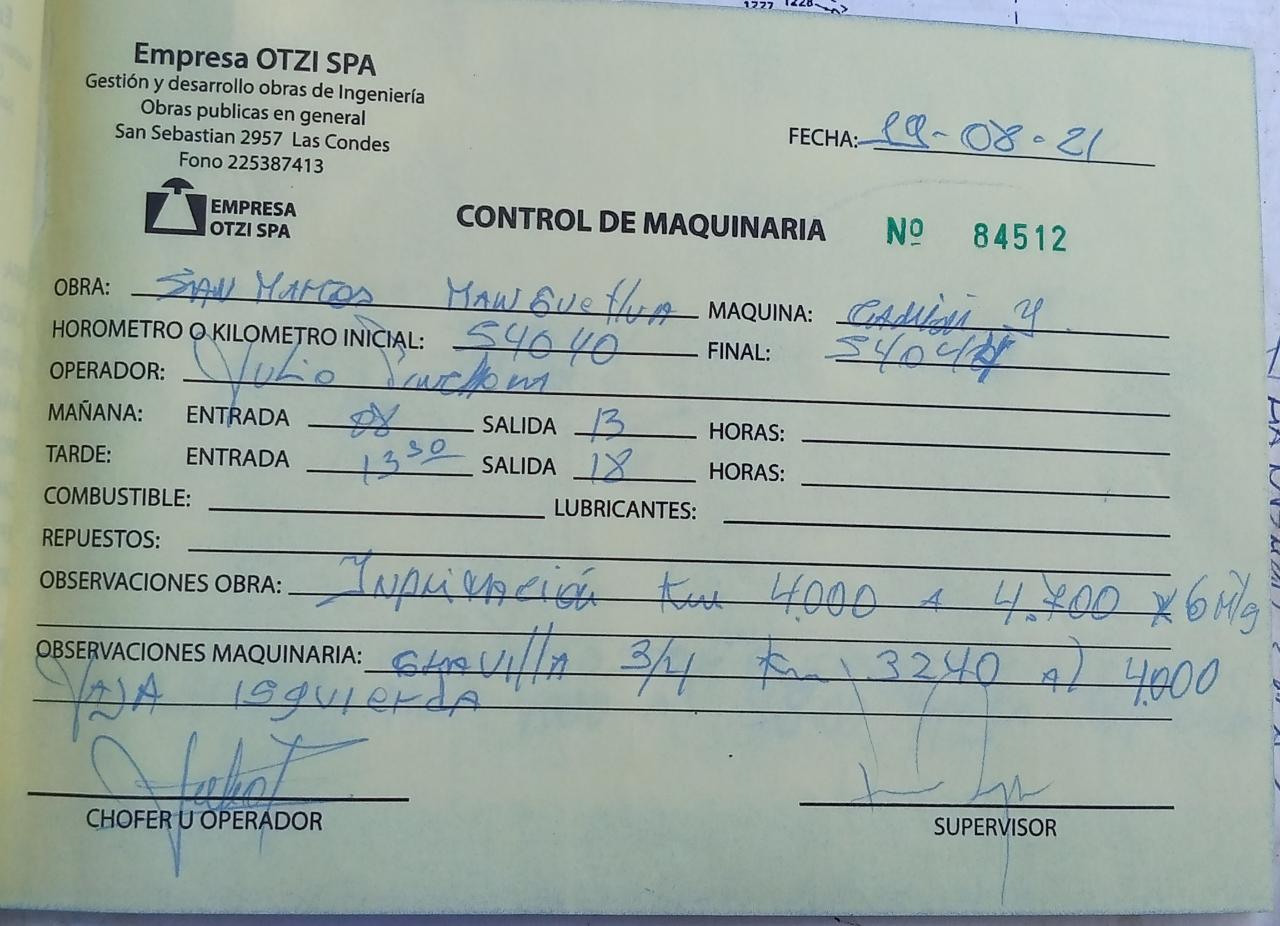 1227 1228
Empresa OTZI SPA
Gestión y desarrollo obras de Ingeniería
Obras publicas en general
San Sebastian 2957 Las Condes
Fono 225387413
FECHA: 19-08-21
EMPRESA
OTZI SPA
CONTROL DE MAQUINARIA Nº 84512
OBRA: SAN MARCOS MAQUINA: CAMION
HOROMETRO O KILOMETRO INICIAL: 54040 FINAL:
OPERADOR: Julio
MAÑANA: ENTRADA 08 SALIDA 13 HORAS:
TARDE: ENTRADA 13 30 SALIDA 18 HORAS:
COMBUSTIBLE: LUBRICANTES:
REPUESTOS:
OBSERVACIONES OBRA: Km 4.000 A 4.700 x 6
OBSERVACIONES MAQUINARIA: GRAVILLA 3/4 Km 3240 Al 4.000
ISQUIERDA
CHOFER U OPERADOR
SUPERVISOR